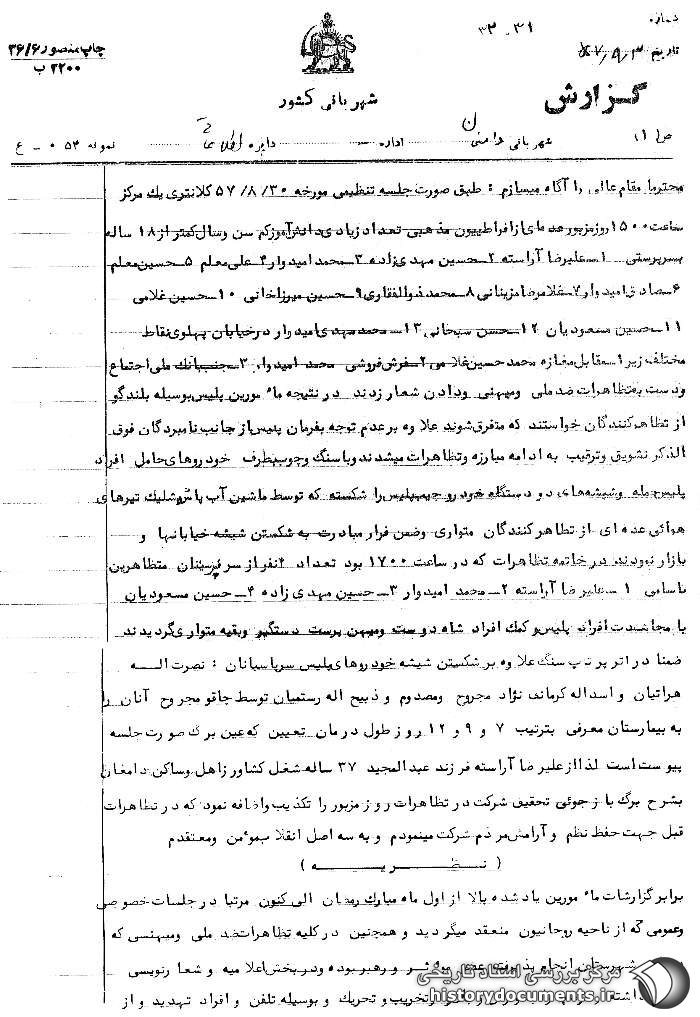 شماره ۳۱-۳۳
تاریخ ۵۷/۹/۳
چاپ منصور ۳۶/۶
۲۲۰۰ ب
شهربانی کشور
گزارش
شهربانی دامغان اداره دایره اطلاعات نمونه ۰۵۳ - ع
محترما مقام عالی را آگاه میسازم : طبق صورت جلسه تنظیمی مورخه ۵۷/۸/۳۰ کلانتری یك مرکز
ساعت ۱۵۰۰ روز مزبور عده‌ای از افراطییون مذهبی تعداد زیادی دانش‌آموز کم سن وسال کمتر از ۱۸ ساله
بسرپرستی ۱- علیرضا آراسته ۲- حسین مهدی‌زاده ۳- محمد امیدوار ۴- علی معلم ۵- حسین معلم
۶- صادق امیدوار ۷- غلامرضا مزینانی ۸- محمد ذوالفقاری ۹- حسین میرزاخانی ۱۰- حسین غلامی
۱۱- حسین مسعودیان ۱۲- حسن سبحانی ۱۳- محمد مهدی امیدوار در خیابان پهلوی نقاط
مختلف زیر ۱- مقابل مغازه محمد حسین غلامی ۲- فرش فروشی محمد امیدوار ۳- جنب بانك ملی اجتماع
ودست بتظاهرات ضد ملی ومیهنی ودادن شعار زدند در نتیجه مأمورین پلیس بوسیله بلندگو
از تظاهرکنندگان خواستند که متفرق شوند علاوه بر عدم توجه بفرمان پلیس از جانب نامبردگان فوق
الذکر تشویق وترغیب به ادامه مبارزه وتظاهرات میشدند وبا سنگ وچوب بطرف خودروهای حامل افراد
پلیس حمله وشیشه‌های دو دستگاه خودرو جیپ پلیس را شکسته که توسط ماشین آب پاش وشلیك تیرهای
هوائی عده‌ای از تظاهرکنندگان متواری وضمن فرار مبادرت به شکستن شیشه خیابانها و
بازار نمودند در خاتمه تظاهرات که در ساعت ۱۷۰۰ بود تعداد ۴ نفر از سرپرستان متظاهرین
باسامی ۱- علیرضا آراسته ۲- محمد امیدوار ۳- حسین مهدی زاده ۴- حسین مسعودیان
با مجاهدت افراد پلیس و کمك افراد شاه دوست ومیهن پرست دستگیر وبقیه متواری گردیدند
ضمنا در اثر پرتاپ سنگ علاوه بر شکستن شیشه خودروهای پلیس سرپاسبانان : نصرت اله
هراتیان و اسداله کرمانی نژاد مجروح ومصدوم و ذبیح اله رستمیان توسط چاقو مجروح آنان را
به بیمارستان معرفی بترتیب ۷ و ۹ و ۱۲ روز طول درمان تعیین که عین برگ صورت جلسه
پیوست است لذا از علیرضا آراسته فرزند عبدالمجید ۳۷ ساله شغل کشاورز اهل وساکن دامغان
بشرح برگ بازجوئی تحقیق شرکت در تظاهرات روز مزبور را تکذیب واضافه نمود که در تظاهرات
قبل جهت حفظ نظم و آرامش مردم شرکت مینمودم و به سه اصل انقلاب مؤمن ومعتقدم
( نظریه )
برابر گزارشات مأمورین یاد شده بالا از اول ماه مبارك رمضان الی کنون مرتبا در جلسات خصوصی
وعمومی که از ناحیه روحانیون منعقد میگردید و همچنین در کلیه تظاهرات ضد ملی ومیهنی که
شهرستان انجام پذیرفته عضو مؤثر و رهبر بوده ودر پخش اعلامیه و شعارنویسی
داشته وتخریب و تحریك و بوسیله تلفن و افراد تهدید و از
مرکز بررسی اسناد تاریخی
historydocuments.ir